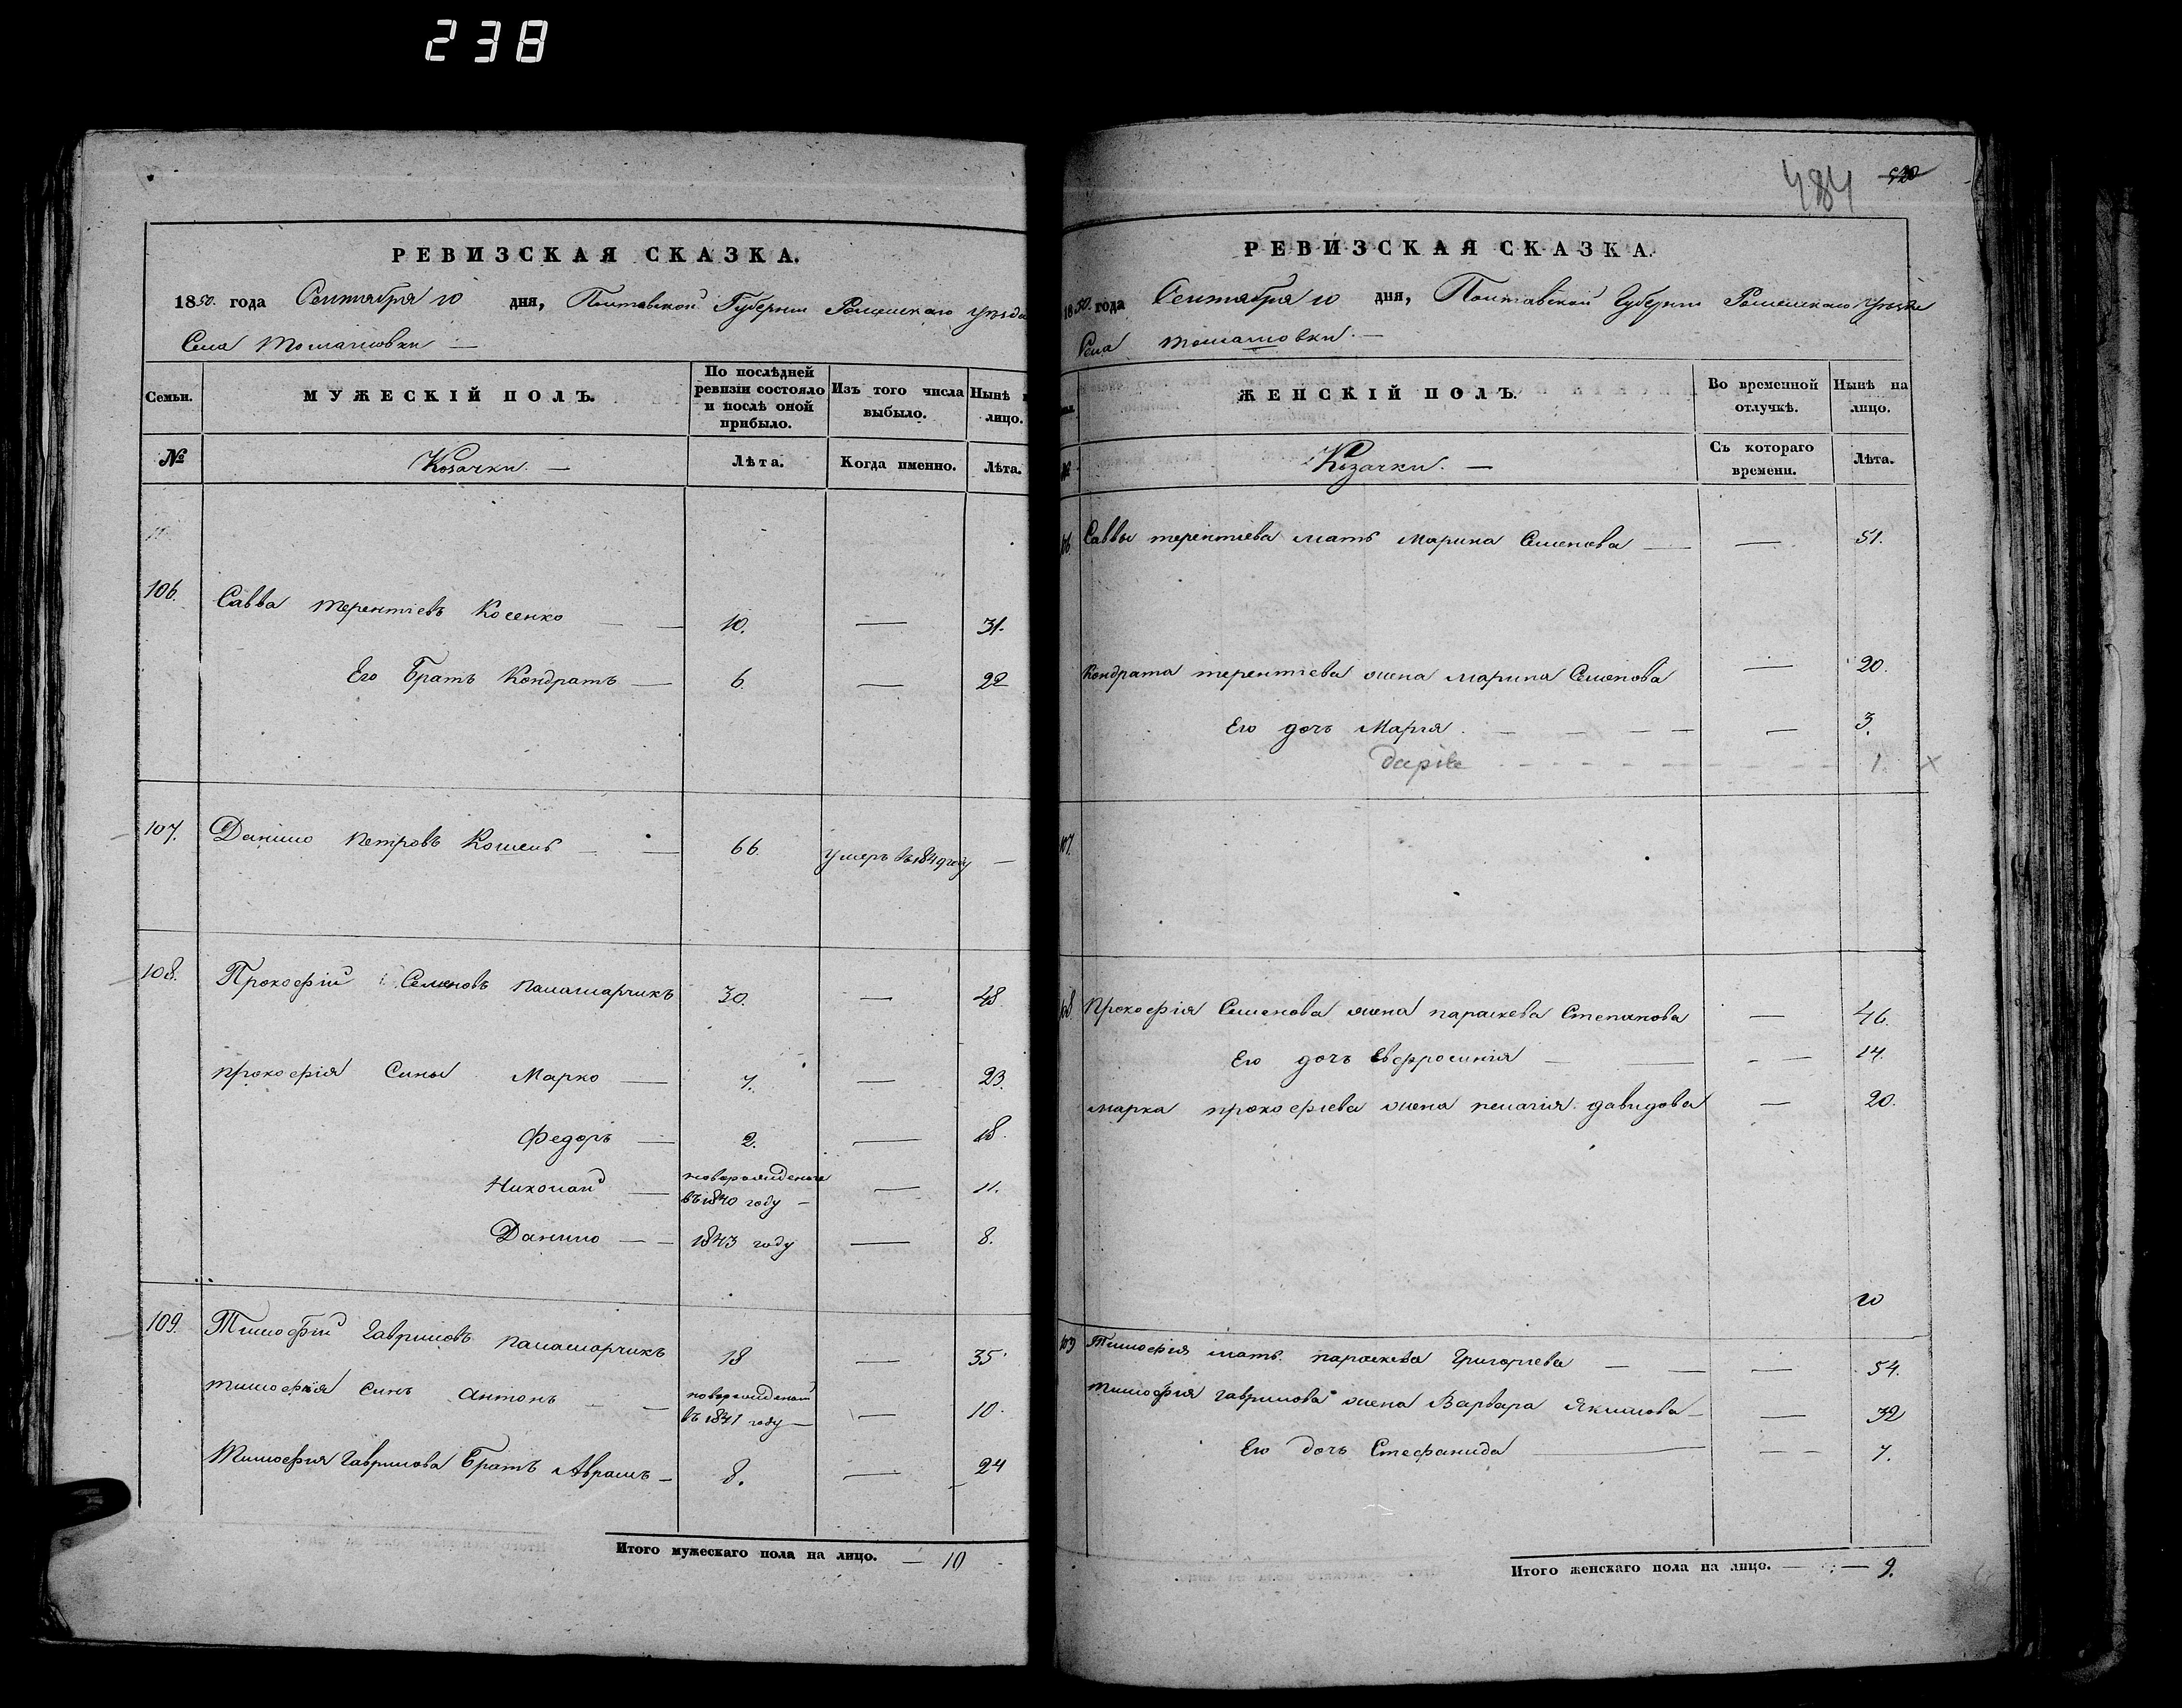 238
РЕВИЗСКАЯ СКАЗКА.
1850. года Сентября 10 дня, Полтавской Губернии Роменскаго уѣзда
Села Томашовки —
Семьи.
МУЖЕСКІЙ ПОЛЪ.
По послѣдней ревизіи состояло и послѣ оной прибыло.
Изъ того числа выбыло.
Нынѣ
лицо.
№
Козачки. —
Лѣта.
Когда именно.
Лѣта.
106. Савва терентіевъ Косенко — — 10. — 31.
Его Братъ Кондратъ — 6. — 22
107. Данило петровъ Кошель — — 66. умеръ въ 1849 году —
108. Прокофій Семеновъ палашарчикъ 30. — 48
прокофія Сины Марко — 7. — 23.
Федоръ — 2. — 18.
Николай — новорожденые
въ 1840 году — — 11.
Данило — — 1843 году — 8.
109. Тимофій Гавриловъ палашарчикъ 18 — 35
тимофія Синъ Антонъ — — новорожденый
въ 1841 году — — 10.
Тимофія Гаврилова Братъ Аврамъ — 8. — 24
Итого мужескаго пола на лицо. — 10
484 520
РЕВИЗСКАЯ СКАЗКА.
1850. года Сентября 10 дня, Полтавской Губерніи Роменскаго уѣзда
Села томашовки. —
ЖЕНСКІЙ ПОЛЪ.
Во временной отлучкѣ.
Нынѣ на лицо.
Козачки. —
Съ котораго времени.
Лѣта.
106 Саввы терентіева мать Марина Семенова — — 51.
Кондрата терентіева жена Марина Семенова — 20.
Его дочь Марія. — — — — — 3.
Дарія 1. ×
107.
108. Прокофія Семенова жена параскева Степанова — 46.
Его дочь Евфросинія — — 14.
марка прокофіева жена пелагія давидова — 20.
20
109 Тимофія мать параскева Григоріева — — — 54.
тимофія гаврилова жена Варвара Якимова — — 32
Его дочь Стефанида — — — 7.
Итого женскаго пола на лицо. — — 9.